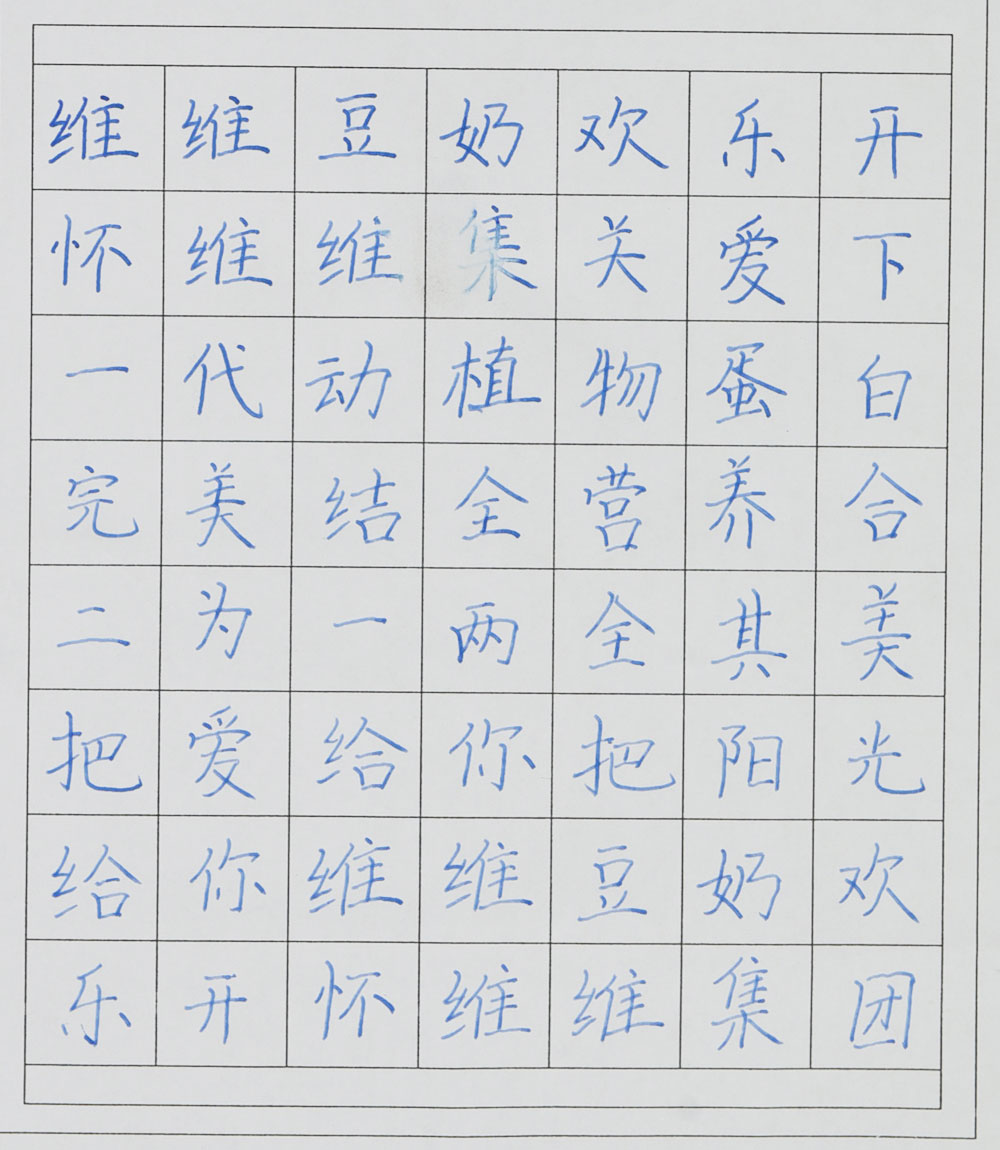 维维豆奶欢乐开
怀维维集关爱下
一代动植物蛋白
完美结全营养合
二为一两全其美
把爱给你把阳光
给你维维豆奶欢
乐开怀维维集团